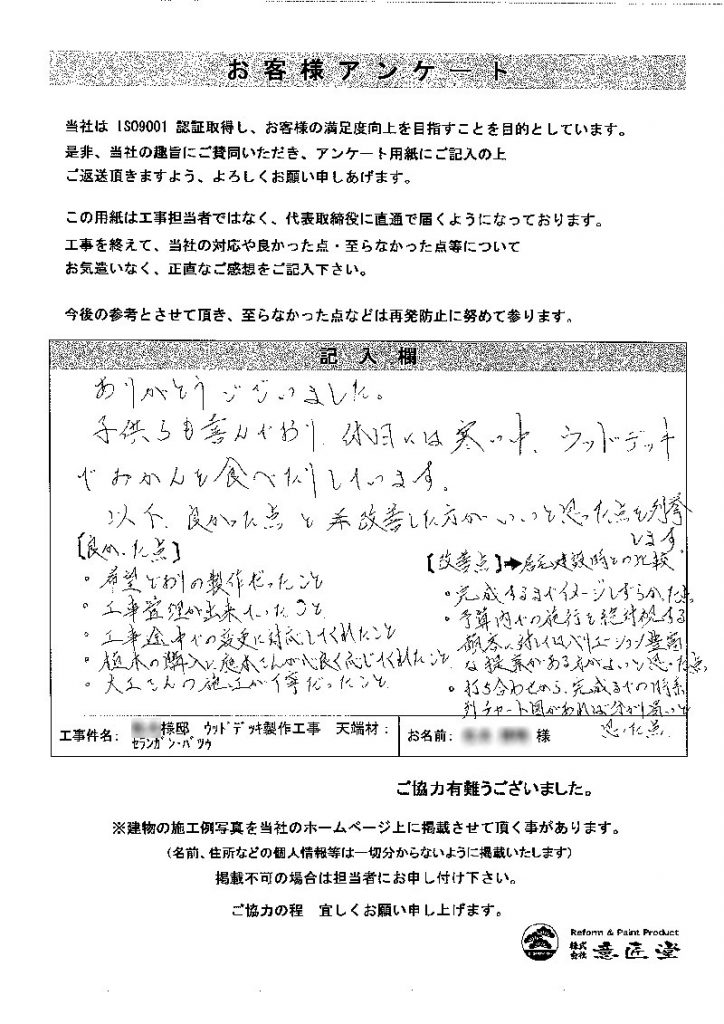 お客様アンケート
当社は ISO9001 認証取得し、お客様の満足度向上を目指すことを目的としています。
是非、当社の趣旨にご賛同いただき、アンケート用紙にご記入の上
ご返送頂きますよう、よろしくお願い申しあげます。
この用紙は工事担当者ではなく、代表取締役に直通で届くようになっております。
工事を終えて、当社の対応や良かった点・至らなかった点等について
お気遣いなく、正直なご感想をご記入下さい。
今後の参考とさせて頂き、至らなかった点などは再発防止に努めて参ります。
記入欄
ありがとうございました。
子供らも喜んでおり、休日には寒い中、ウッドデッキ
でみかんを食べたりしています。
以下、良かった点と 改善した方がいいと思った点を列挙
します。
[良かった点]
・希望どおりの製作だったこと
・工事管理が出来ていたこと
・工事途中での変更に対応してくれたこと
・植木の購入に 心良く応じてくれたこと
・大工さんの施工が丁寧だったこと
[改善点]➡居宅建設時との比較
・完成するまでイメージしずらかった点
・予算内での施行を絶対視する
顧客に対してはバリエーション豊富
な提案がある方がよいと思った点
・打ち合わせから、完成までの時系
列チャート図があれば分かり易いと
思った点
工事件名: 様邸 ｳｯﾄﾞﾃﾞｯｷ製作工事 天端材：
ｾﾗﾝｶﾞﾝ･ﾊﾞﾂｳ
お名前: 様
ご協力有難うございました。
※建物の施工例写真を当社のホームページ上に掲載させて頂く事があります。
(名前、住所などの個人情報等は一切分からないように掲載いたします)
掲載不可の場合は担当者にお申し付け下さい。
ご協力の程　宜しくお願い申し上げます。
Reform & Paint Product
株式会社 意匠堂